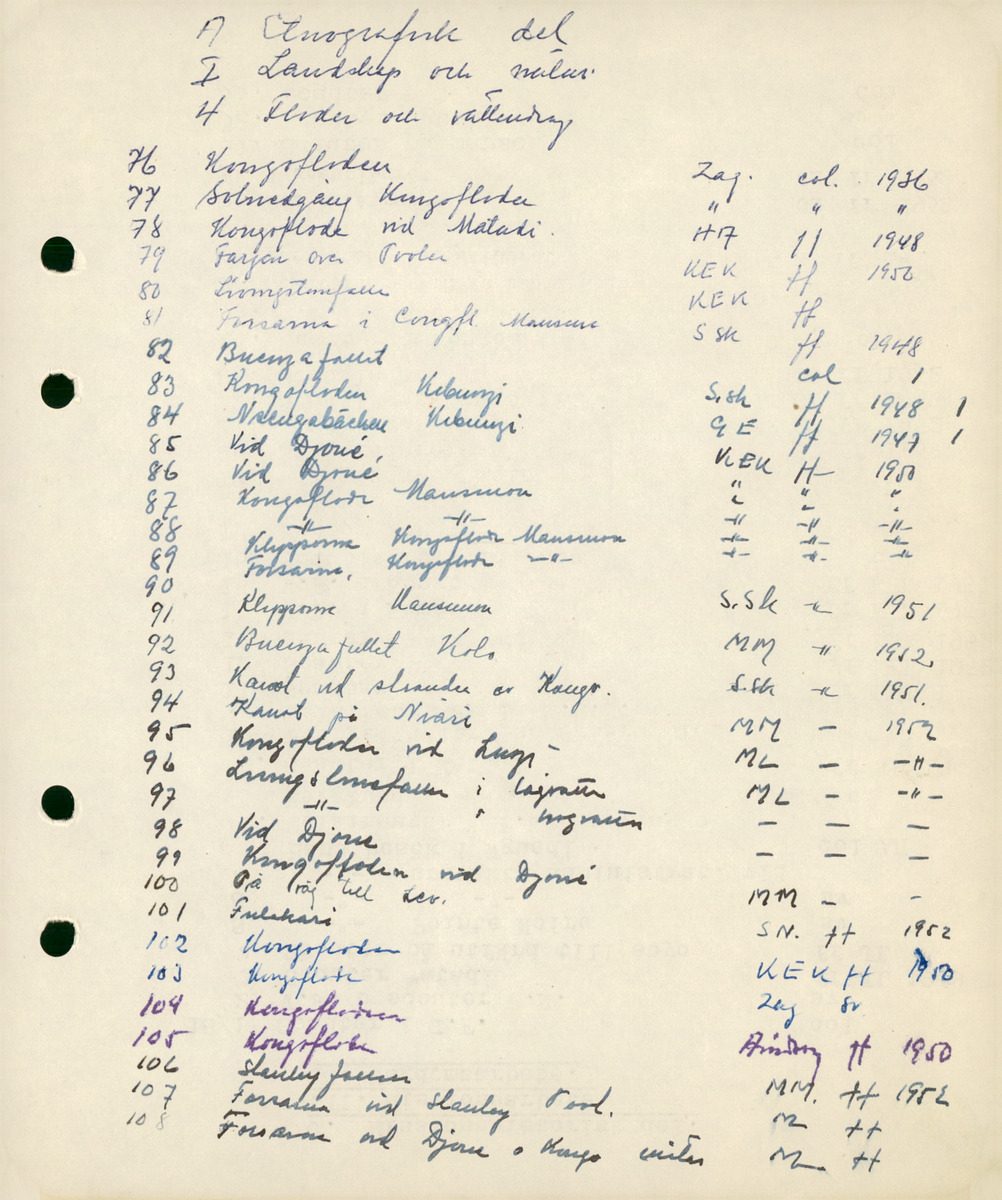 A Etnografisk del
I Landskap och natur.
4 Floder och vattendrag
76 Kongofloden Zag. col. 1936
77 Solnedgång Kongofloden " " "
78 Kongofloden vid Matadi. HA ff 1948
79 Färgen över Poolen KEK ff 1950
80 Livingstonefallen KEK ff
81 Forsarna i Congfl. Mansimou S Sk ff 1948
82 Buenzafallet col 1
83 Kongofloden Kibunzi S.Sk ff 1948 1
84 Nsengabäcken Kibunzi GE ff 1947 1
85 Vid Djoué, KEK ff 1950
86 Vid Djoué " " "
87 Kongofloden Mansimou
88 -"- -"- -"- -"- -"-
89 Klipporna Kongofloden Mansimou -"- -"- -"-
90 Forsarna, Kongofloden -"- -"- -"- -"-
91 Klipporna Mansimou S.Sk -"- 1951
92 Buenzafallet Kolo MM -"- 1952
93 Kanot vid stranden av Kongo. S.Sk -"- 1951.
94 Kanot på Niari MM - 1952
95 Kongofloden vid ML - -"-
96 Livingstonefallen i lågvatten ML - -"-
97 -"- " högvatten - - -
98 Vid Djoue - - -
99 Kongofloden vid Djoué
100 På väg till Leo. MM - -
101 Fulakari SN. ff 1952
102 Kongofloden KEK ff 1950
103 Kongofloden Zag sv
104 Kongofloden
105 Kongofloden ff 1950
106 Stanleyfallen MM. ff 1952
107 Forsarna vid Stanley Pool. M ff
108 Forsarna vid Djoue o Kongo möter M ff